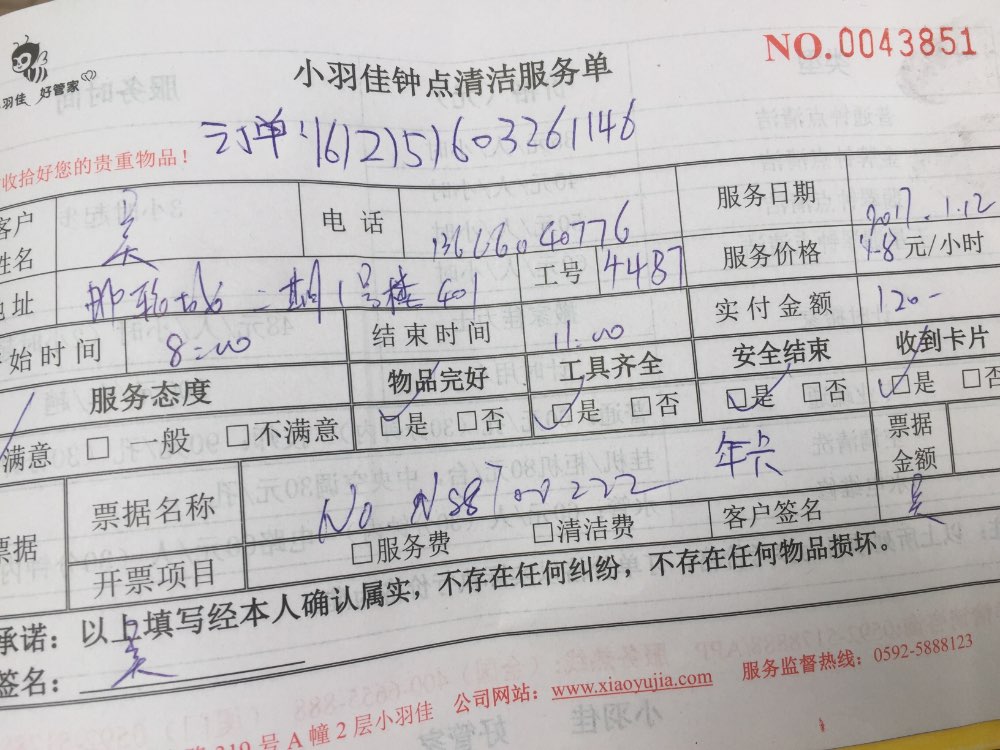 NO.0043851
小羽佳 好管家
小羽佳钟点清洁服务单
订单:1612151603261146
收拾好您的贵重物品！
客户姓名 吴 电话 13666040776 服务日期 2017.1.12
地址 邮轮城二期1号楼401 工号 4487 服务价格 48元/小时
开始时间 8:00 结束时间 11:00 实付金额 120-
服务态度 物品完好 工具齐全 安全结束 收到卡片
满意 □一般 □不满意 □是 □否 □是 □否 □是 □否 □是 □否
票据 票据名称 No NS8700222 年卡 票据金额
开票项目 □服务费 □清洁费 客户签名 吴
承诺：以上填写经本人确认属实，不存在任何纠纷，不存在任何物品损坏。
签名： 吴
219号A幢2层小羽佳 公司网站：www.xiaoyujia.com 服务监督热线：0592-5888123